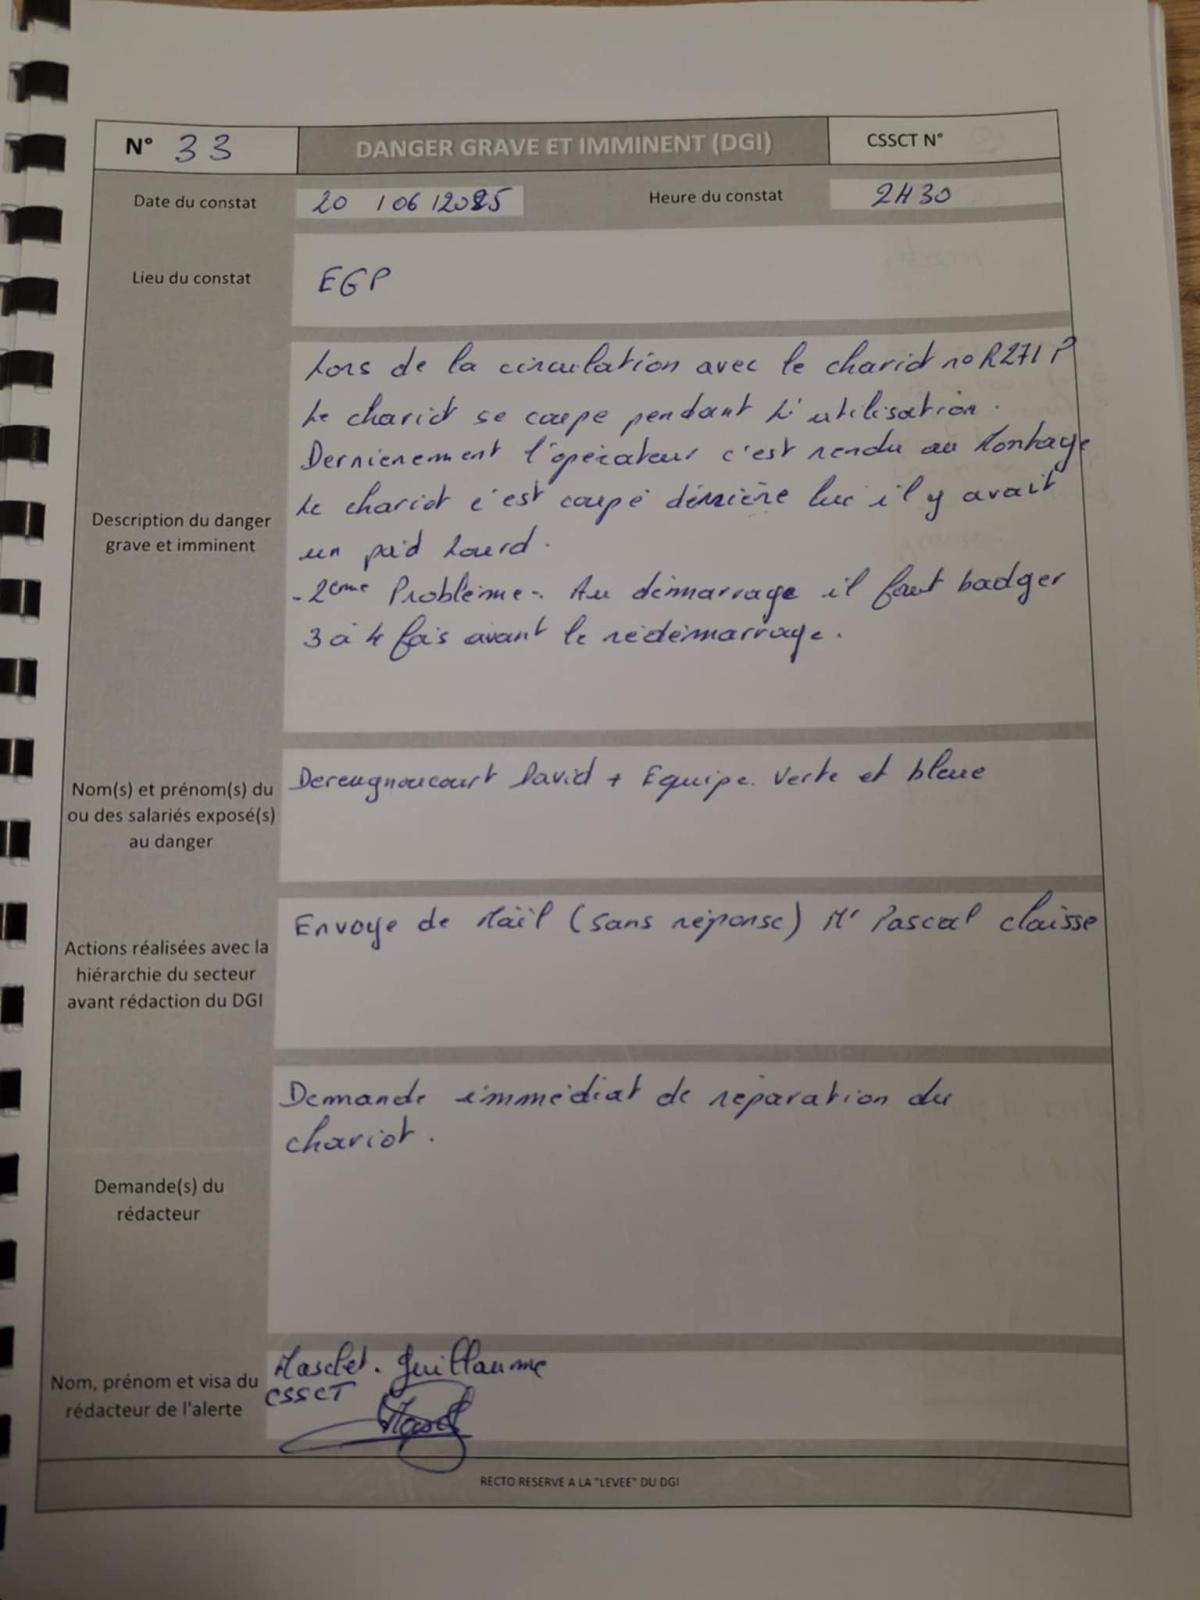 N° 33
DANGER GRAVE ET IMMINENT (DGI)
CSSCT N°
Date du constat
20 / 06 / 2025
Heure du constat
2H30
Lieu du constat
EGP
Description du danger
grave et imminent
Lors de la circulation avec le chariot no R271 P
Le chariot se coupe pendant L'utilisation.
Dernierement l'opérateur c'est rendu au Montage
Le chariot c'est coupé dérrière lui il y avait
un poid Lourd.
- 2eme Problème - Au démarrage il faut badger
3 à 4 fois avant le rédémarrage.
Nom(s) et prénom(s) du
ou des salariés exposé(s)
au danger
Dereugnaucourt David + Equipe. Verte et bleue
Actions réalisées avec la
hiérarchie du secteur
avant rédaction du DGI
Envoye de Maïl (sans réponse) Mr Pascal Claisse
Demande(s) du
rédacteur
Demande immédiat de réparation du
chariot.
Nom, prénom et visa du
rédacteur de l'alerte
Masclet. Guillaume
CSSCT
RECTO RESERVE A LA "LEVEE" DU DGI